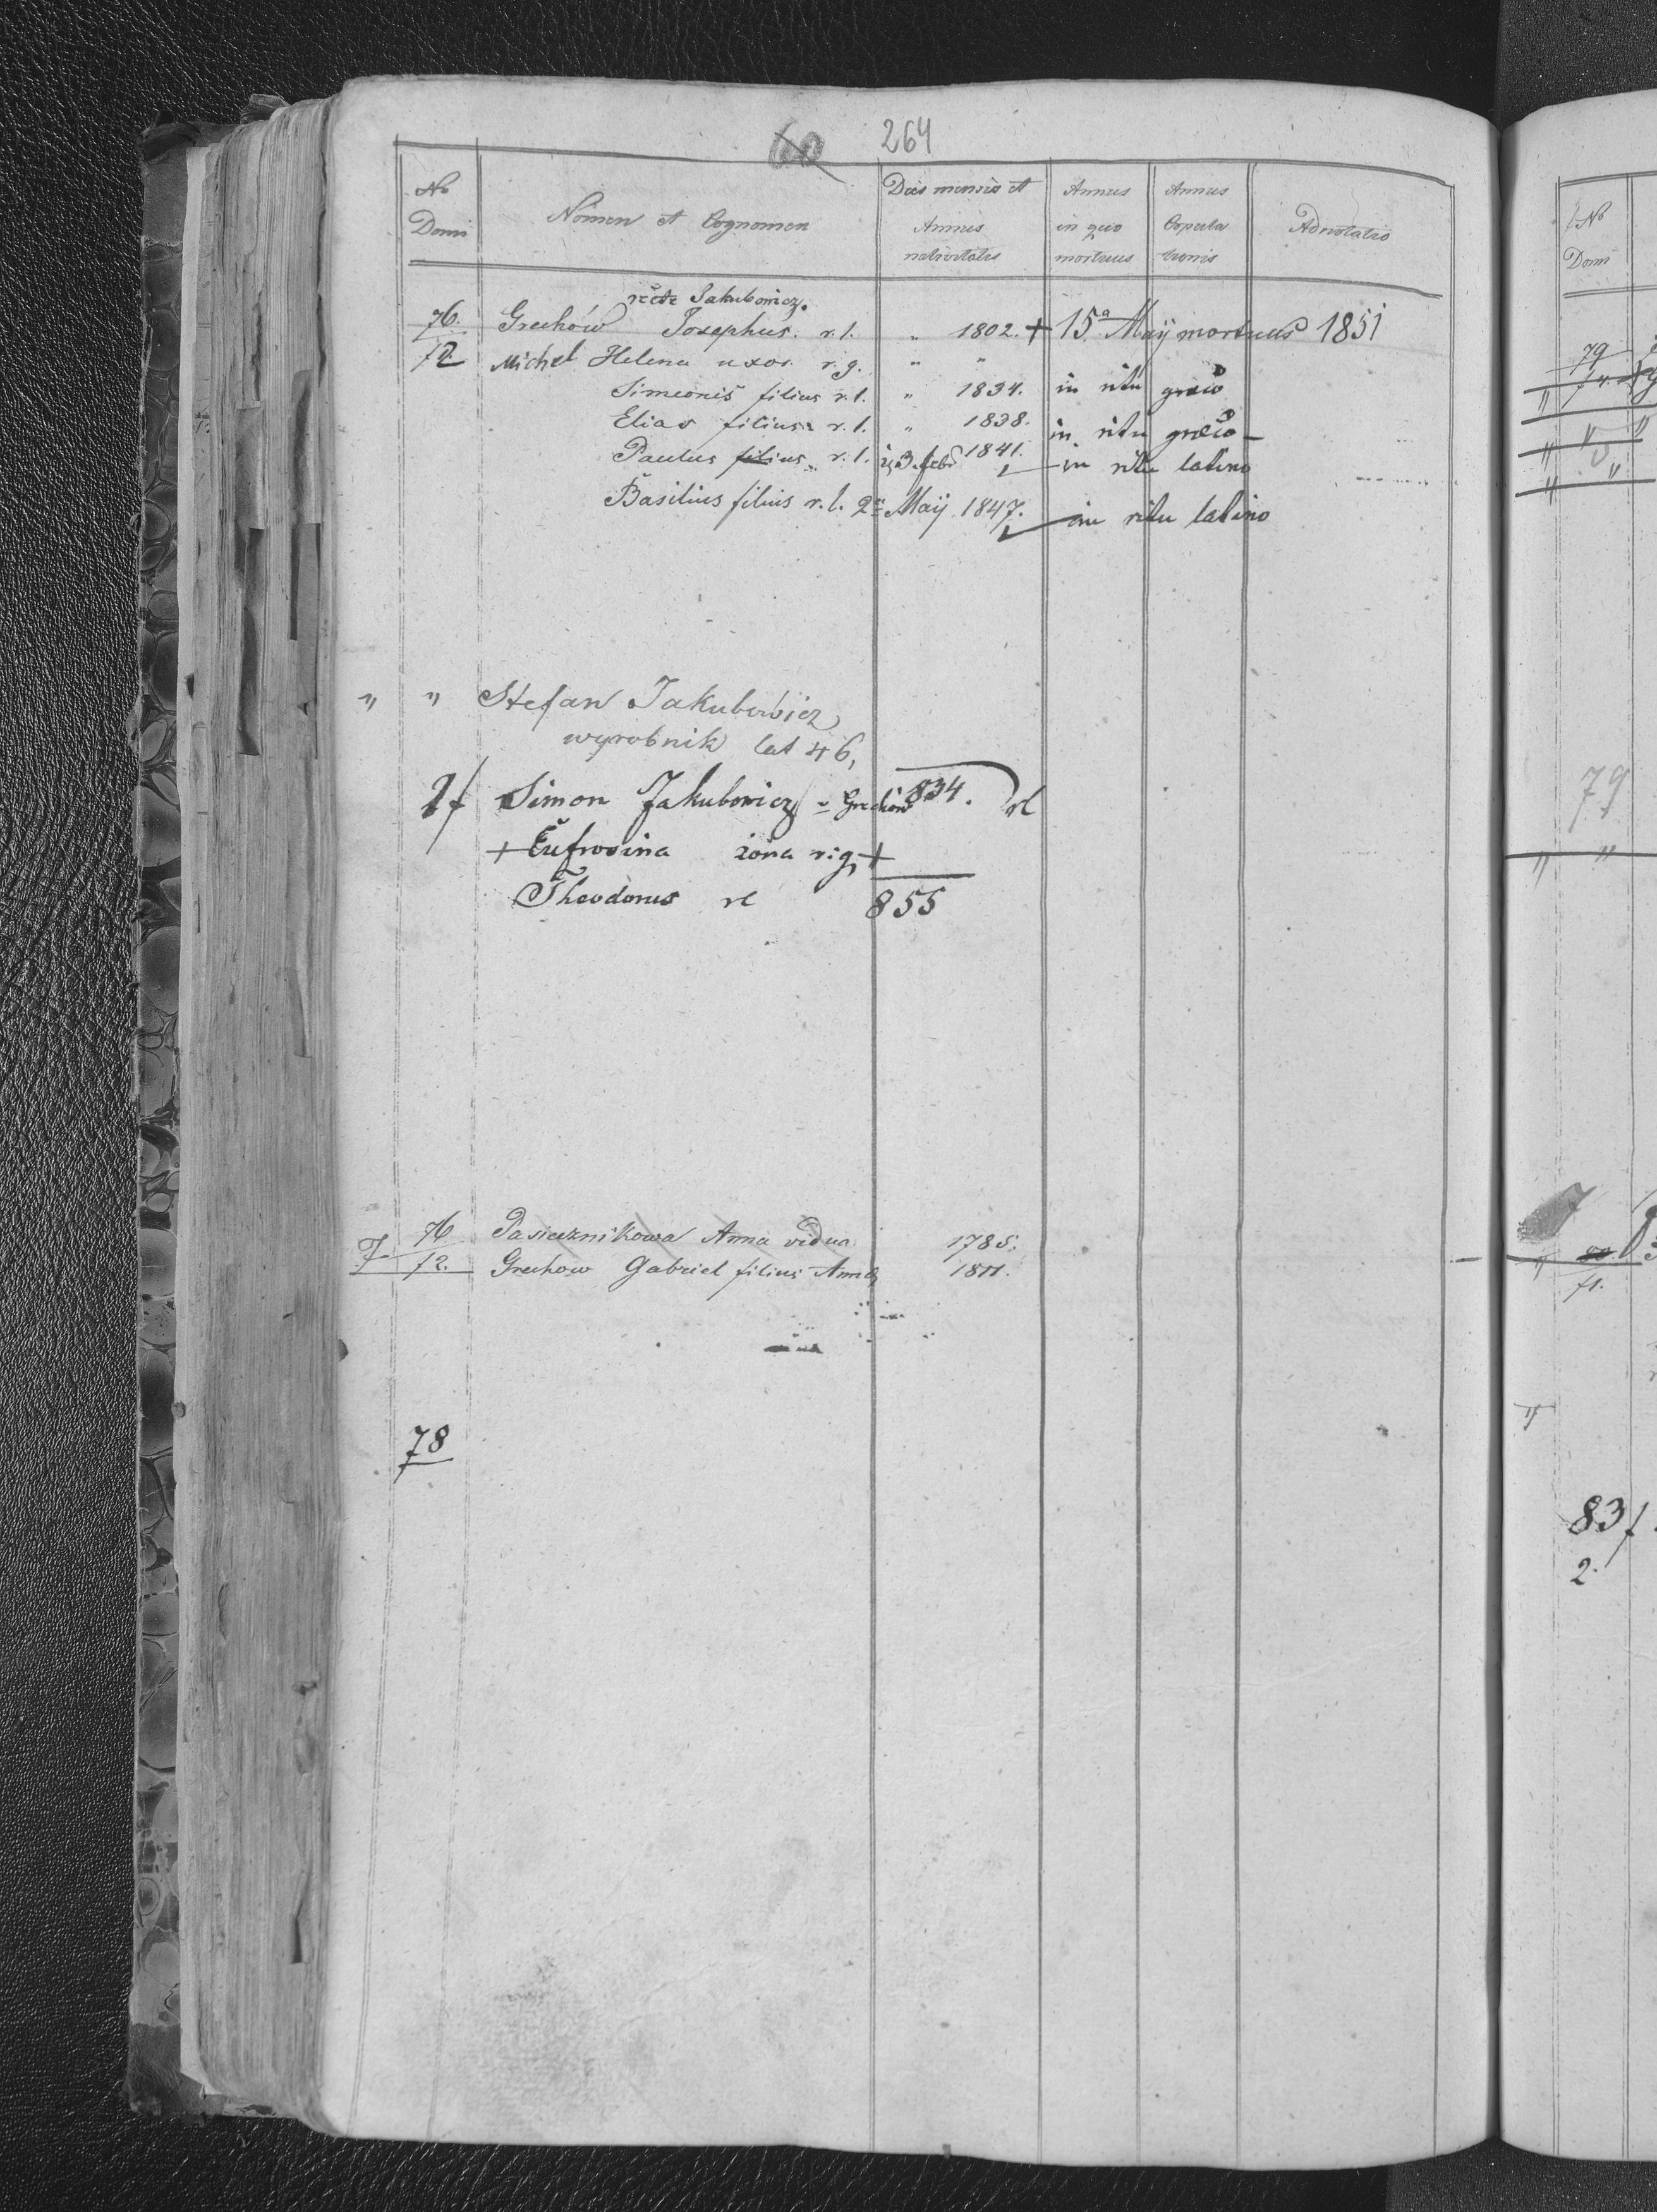 264
No Domi
Nomen et Cognomen
Dies mensis et Annus nativitatis
Annus in quo mortuus
Annus Copulationis
Adnotatio
recte Jakubowicz.
76. Grechów Josephus. r. l. " 1802. + 15a Maij mortuus 1851
72 Michel Helena uxor. r. g. " "
Simeonis filius r. l. " 1834. in ritu graeco
Elias filius r. l. " 1838. in ritu graeco
Paulus filius r. l. 23 feb 1841. in ritu latino
Basilius filius r. l. 2a Maij 1847. in ritu latino
" " Stefan Jakubowicz
wyrobnik lat 46,
Simon Jakubowicz v Grechów 834. rl
+ Eufrosina żona r. g. +
Theodorus rl 855
7. 76 Pasiecznikowa Anna vidua 1785.
72. Grechow Gabriel filius Anna 1811.
78
No
Domi
79
79
71.
83/
2.